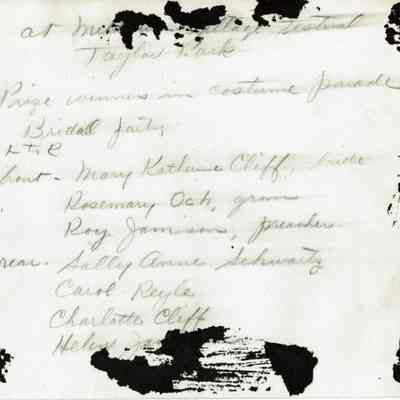 at
Taylor Park
Prize winners in costume parade
Bridal Party
L to R
front - Mary Katherine Cliff, bride
Rosemary Och, groom
Roy Jamison, preacher
rear - Sally Anne Schwartz
Carol Reyle
Charlotte Cliff
Helen